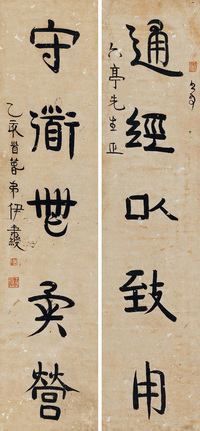 通經以致用
六亭先生正
守衟世營
乙亥首夏弟伊秉綬